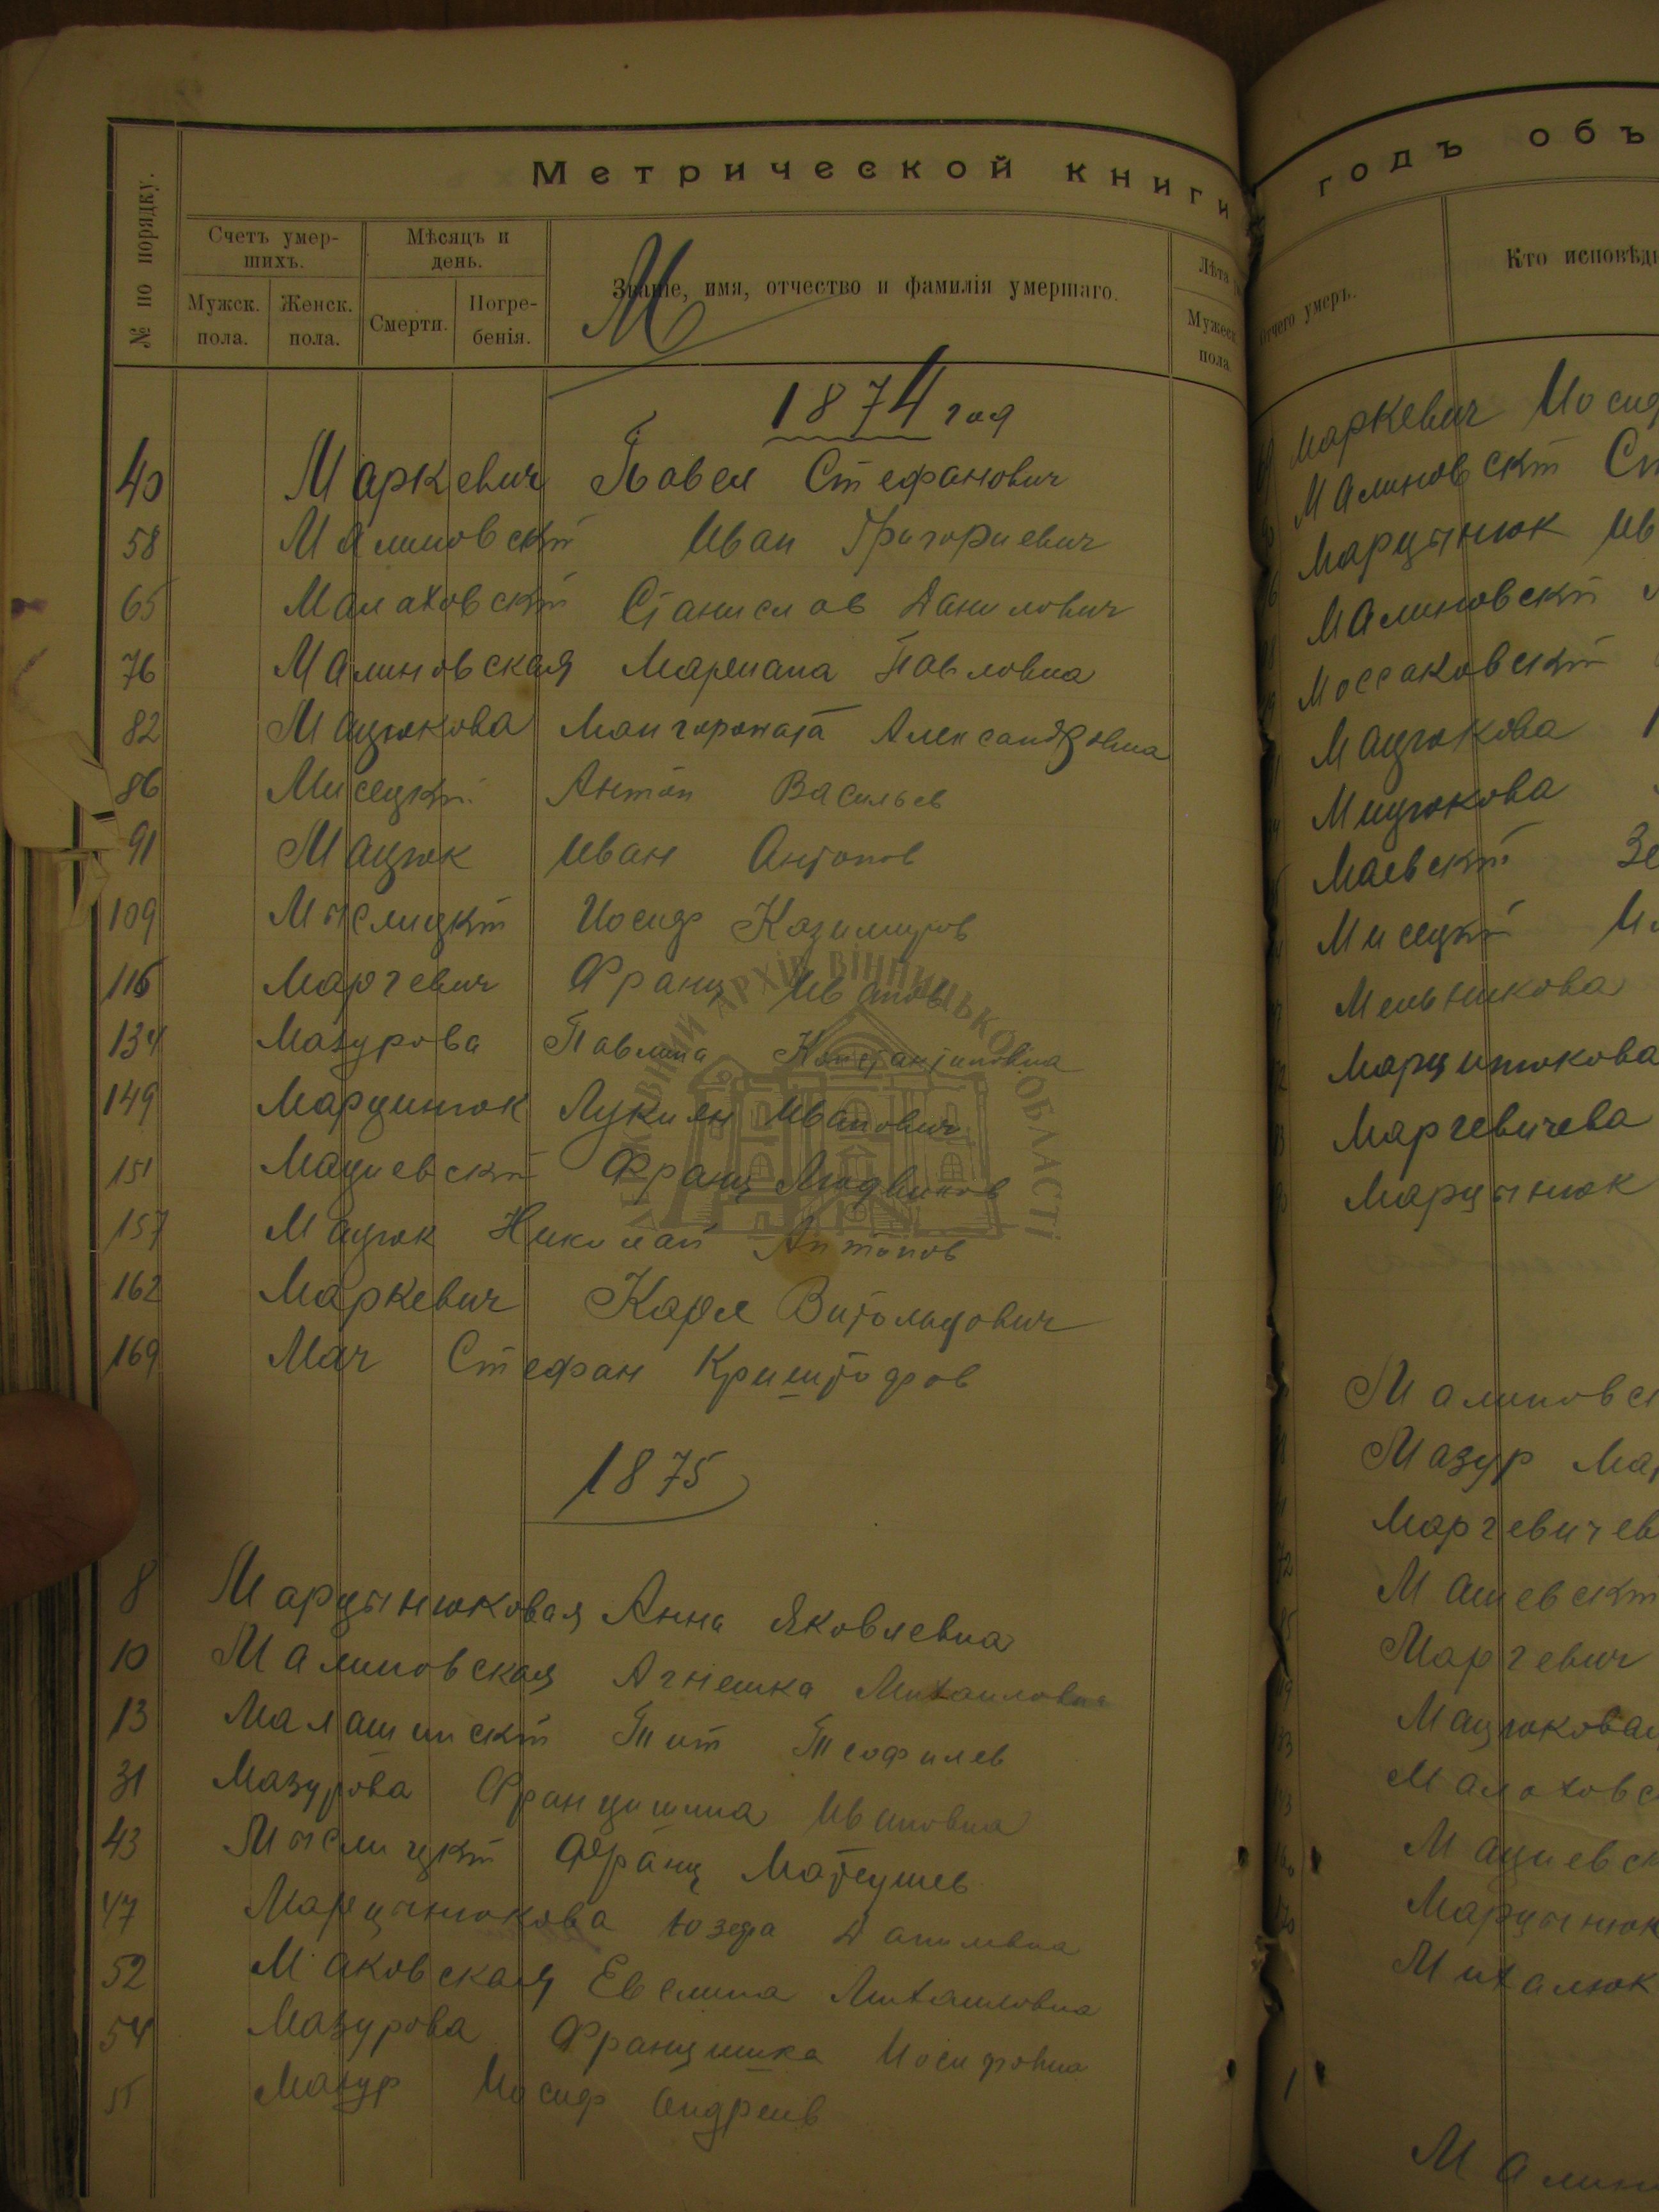 Метрической книги
№ по порядку.
Счетъ умер-
шихъ.
Мѣсяцъ и
день.
Мужск.
пола.
Женск.
пола.
Смерти.
Погре-
бенія.
Званіе, имя, отчество и фамилія умершаго.
М
Лѣта
Мужеск.
пола
1874 год
40 Маркевич Павел Стефанович
58 Малиновскій Иван Григориевич
65 Малаховскій Станислав Данилович
76 Малиновская Марианна Павловна
82 Мацюкова Малгоржата Александровна
86 Мисецкій Антон Васильев
91 Мацюк Иван Антонов
109 Мыслицкій Иосиф Казимиров
116 Маргевич Франц Иванов
134 Мазурова Павлина Константиновна
149 Марцинюк Лукиян Иванович
151 Мациевскій Франц Людвиков
157 Мацюк Николай Антонов
162 Маркевич Карл Витольдович
169 Мач Стефан Криштофов
1875
8 Марцынюковая Анна Яковлевна
10 Малиновская Агнешка Михаиловна
13 Малашинскій Тит Теофилев
31 Мазурова Францишка Ивановна
43 Мыслицкій Франц Матеушев
47 Марцынюкова Юзефа Данилевна
52 Маковская Евелина Михаиловна
54 Мазурова Францишка Иосифовна
55 Мазур Иосиф Андреев
годъ объ
Отчего умеръ.
Кто исповѣды
Маркевич Иосиф
Малиновскій Ст
Марцынюк Ив
Малиновскій
Моссаковскій
Мацюкова
Мицюкова
Маевскій Зе
Мисецкій
Мельникова
Марцинюкова
Маргевичева
Марцынюк
Малиновск
Мазур Мар
Маргевичев
72 Машевскій
Маргевич
Мацюковая
Малаховс
Мациевск
Марцынюк
Михалюк
Малин
АРХІВ ВІННИЦЬКОЇ ОБЛАСТІ